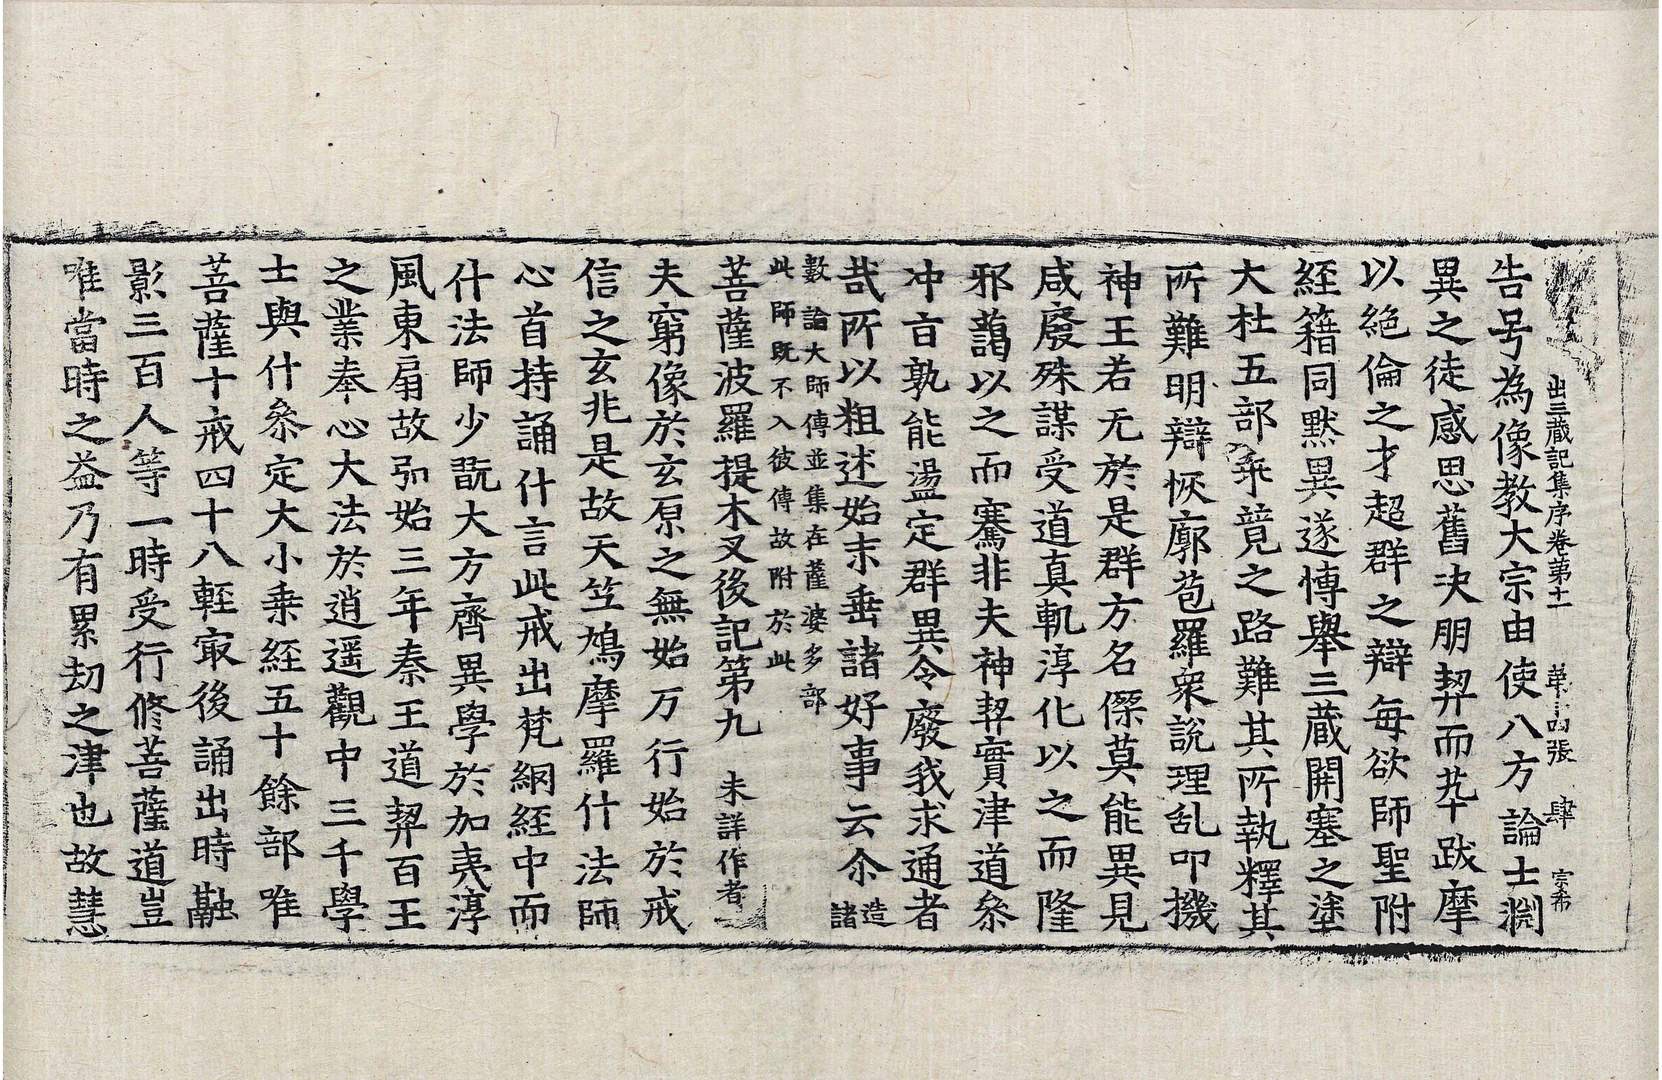 出三藏記集序卷第十一　第十四張　肆　宗希
告号為像教大宗由使八方論士淵
異之徒感思舊決朋契而芿跋摩
以絶倫之才超群之辯每欲師聖附
經籍同默異遂博舉三藏開塞之塗
大杜五部乖競之路難其所執釋其
所難明辯恢廓苞羅衆說理乱叩機
神王若无於是群方名傑莫能異見
咸廢殊謀受道真軌淳化以之而隆
邪藹以之而騫非夫神契實津道叅
冲旨孰能盪定群異令廢我求通者
哉所以粗述始末垂諸好事云尒造諸
數論大師傳並集在薩婆多部
此師既不入彼傳故附於此
菩薩波羅提木叉後記第九　未詳作者
夫窮像於玄原之無始万行始於戒
信之玄兆是故天竺鳩摩羅什法師
心首持誦什言此戒出梵網經中而
什法師少翫大方齊異學於加夷淳
風東扇故弘始三年秦王道契百王
之業奉心大法於逍遥觀中三千學
士與什叅定大小乗經五十餘部唯
菩薩十戒四十八輊冣後誦出時融
影三百人等一時受行修菩薩道豈
唯當時之益乃有累刧之津也故慧